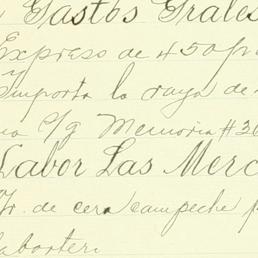 Gastos Grales
Expreso de 450 p
y importa la raya de
c/g Memoria # 36
Labor Las Merc
de cera campeche p